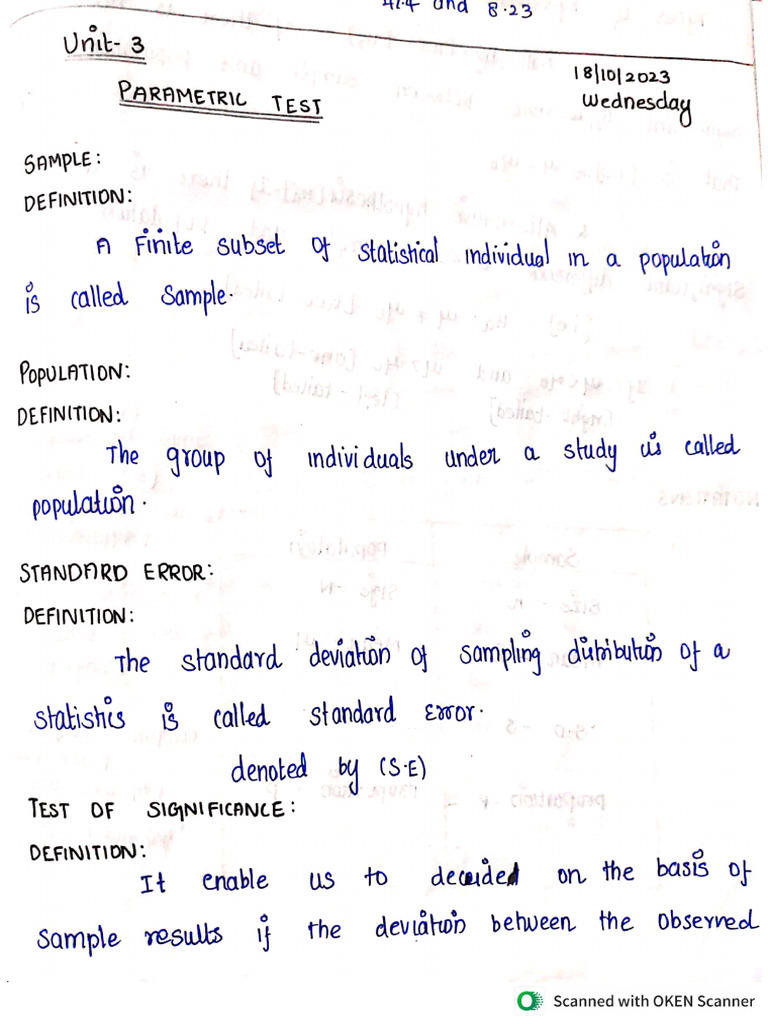 41.4 and 8.23
Unit- 3
18/10/2023
PARAMETRIC TEST
Wednesday
SAMPLE:
DEFINITION:
A Finite subset of statistical individual in a population
is called sample.
POPULATION:
DEFINITION:
The group of individuals under a study is called
population.
STANDARD ERROR:
DEFINITION:
The standard deviation of sampling distribution of a
statistics is called standard Error.
denoted by (S.E)
TEST OF SIGNIFICANCE:
DEFINITION:
It enable us to decided on the basis of
sample results if the deviation between the observed
Scanned with OKEN Scanner